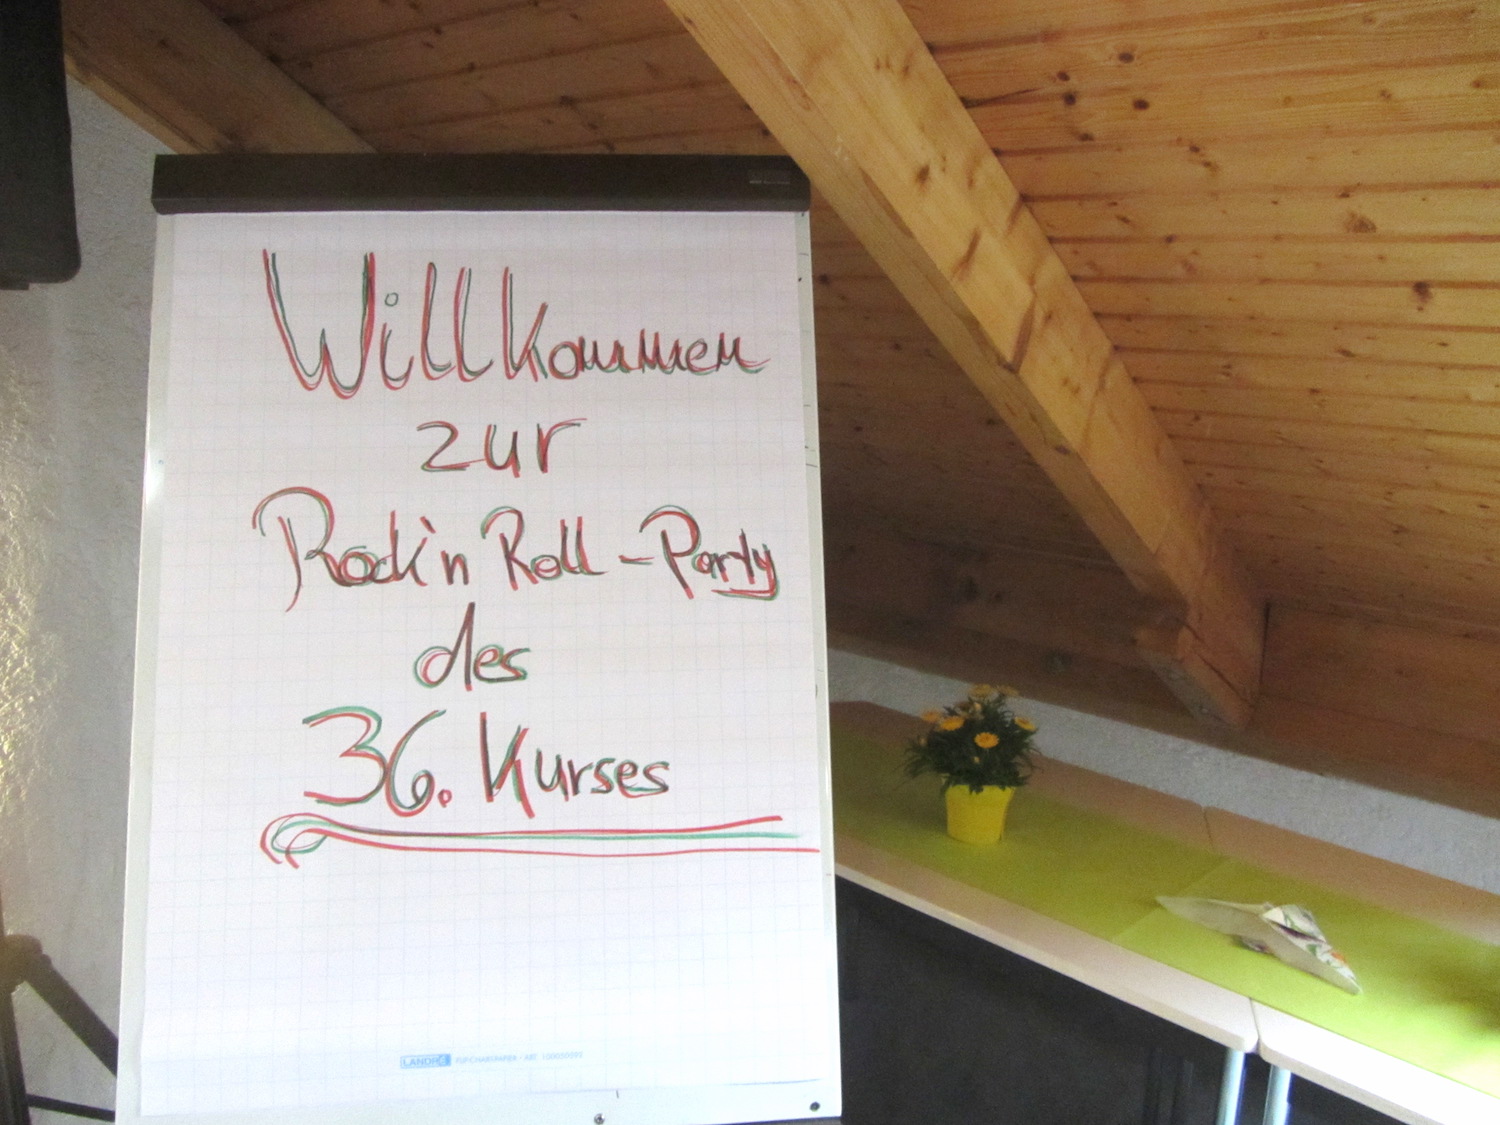 Willkommen
zur
Rock'n Roll - Party
des
36. Kurses
LANDRÉ FLIPCHARTPAPIER - ART. 100050592